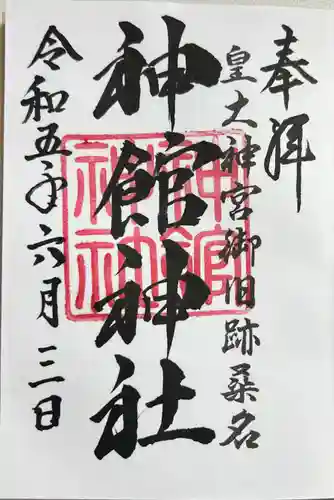 奉拝
皇大神宮御旧跡桑名
神館神社
令和五年六月三日
神館
神社